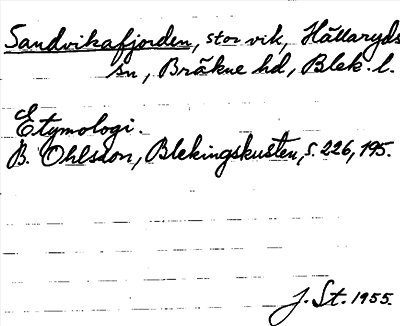 Sandvikafjorden, stor vik, Hällaryds
sn, Bräkne hd, Blek. l.
Etymologi.
B. Ohlsson, Blekingskusten, s. 226, 195.
J. St. 1955.